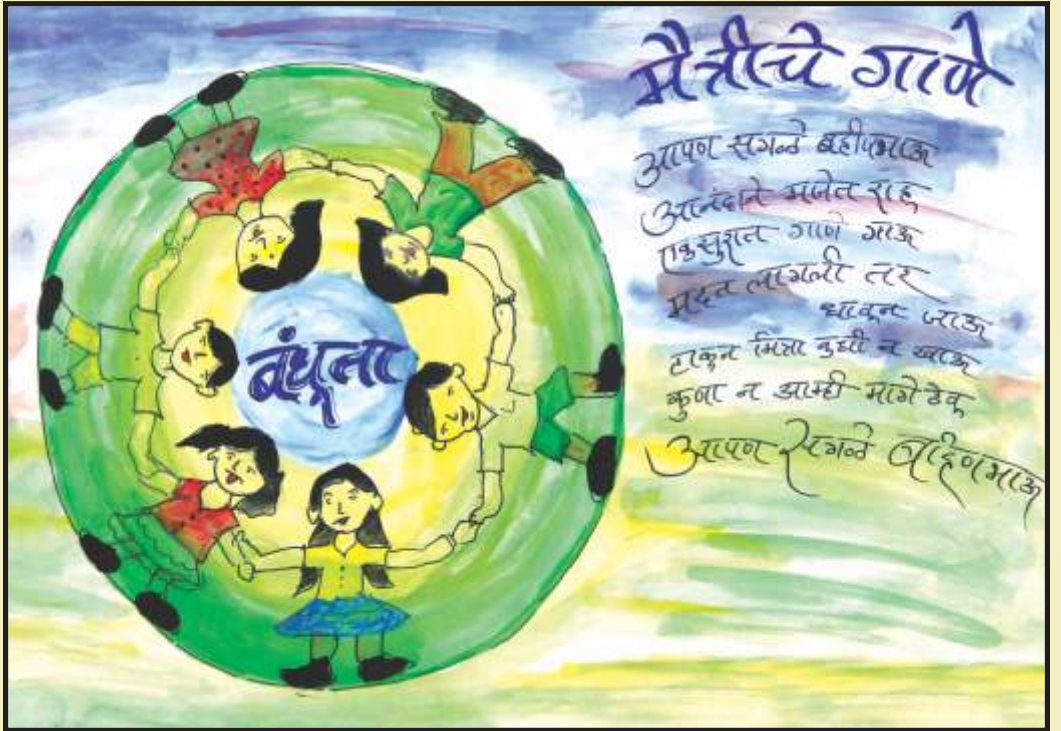 मैत्रीचे गाणे
आपण सगळे बहीणभाऊ
आनंदाने मजेत राहू
एकसुरात गाणे गाऊ
मदत लागली तर
धावून जाऊ
टाकून मित्रा कुणी न खाऊ
कुणा न आम्ही मागे ठेवू
आपण सगळे बहिणभाऊ
बंधूता